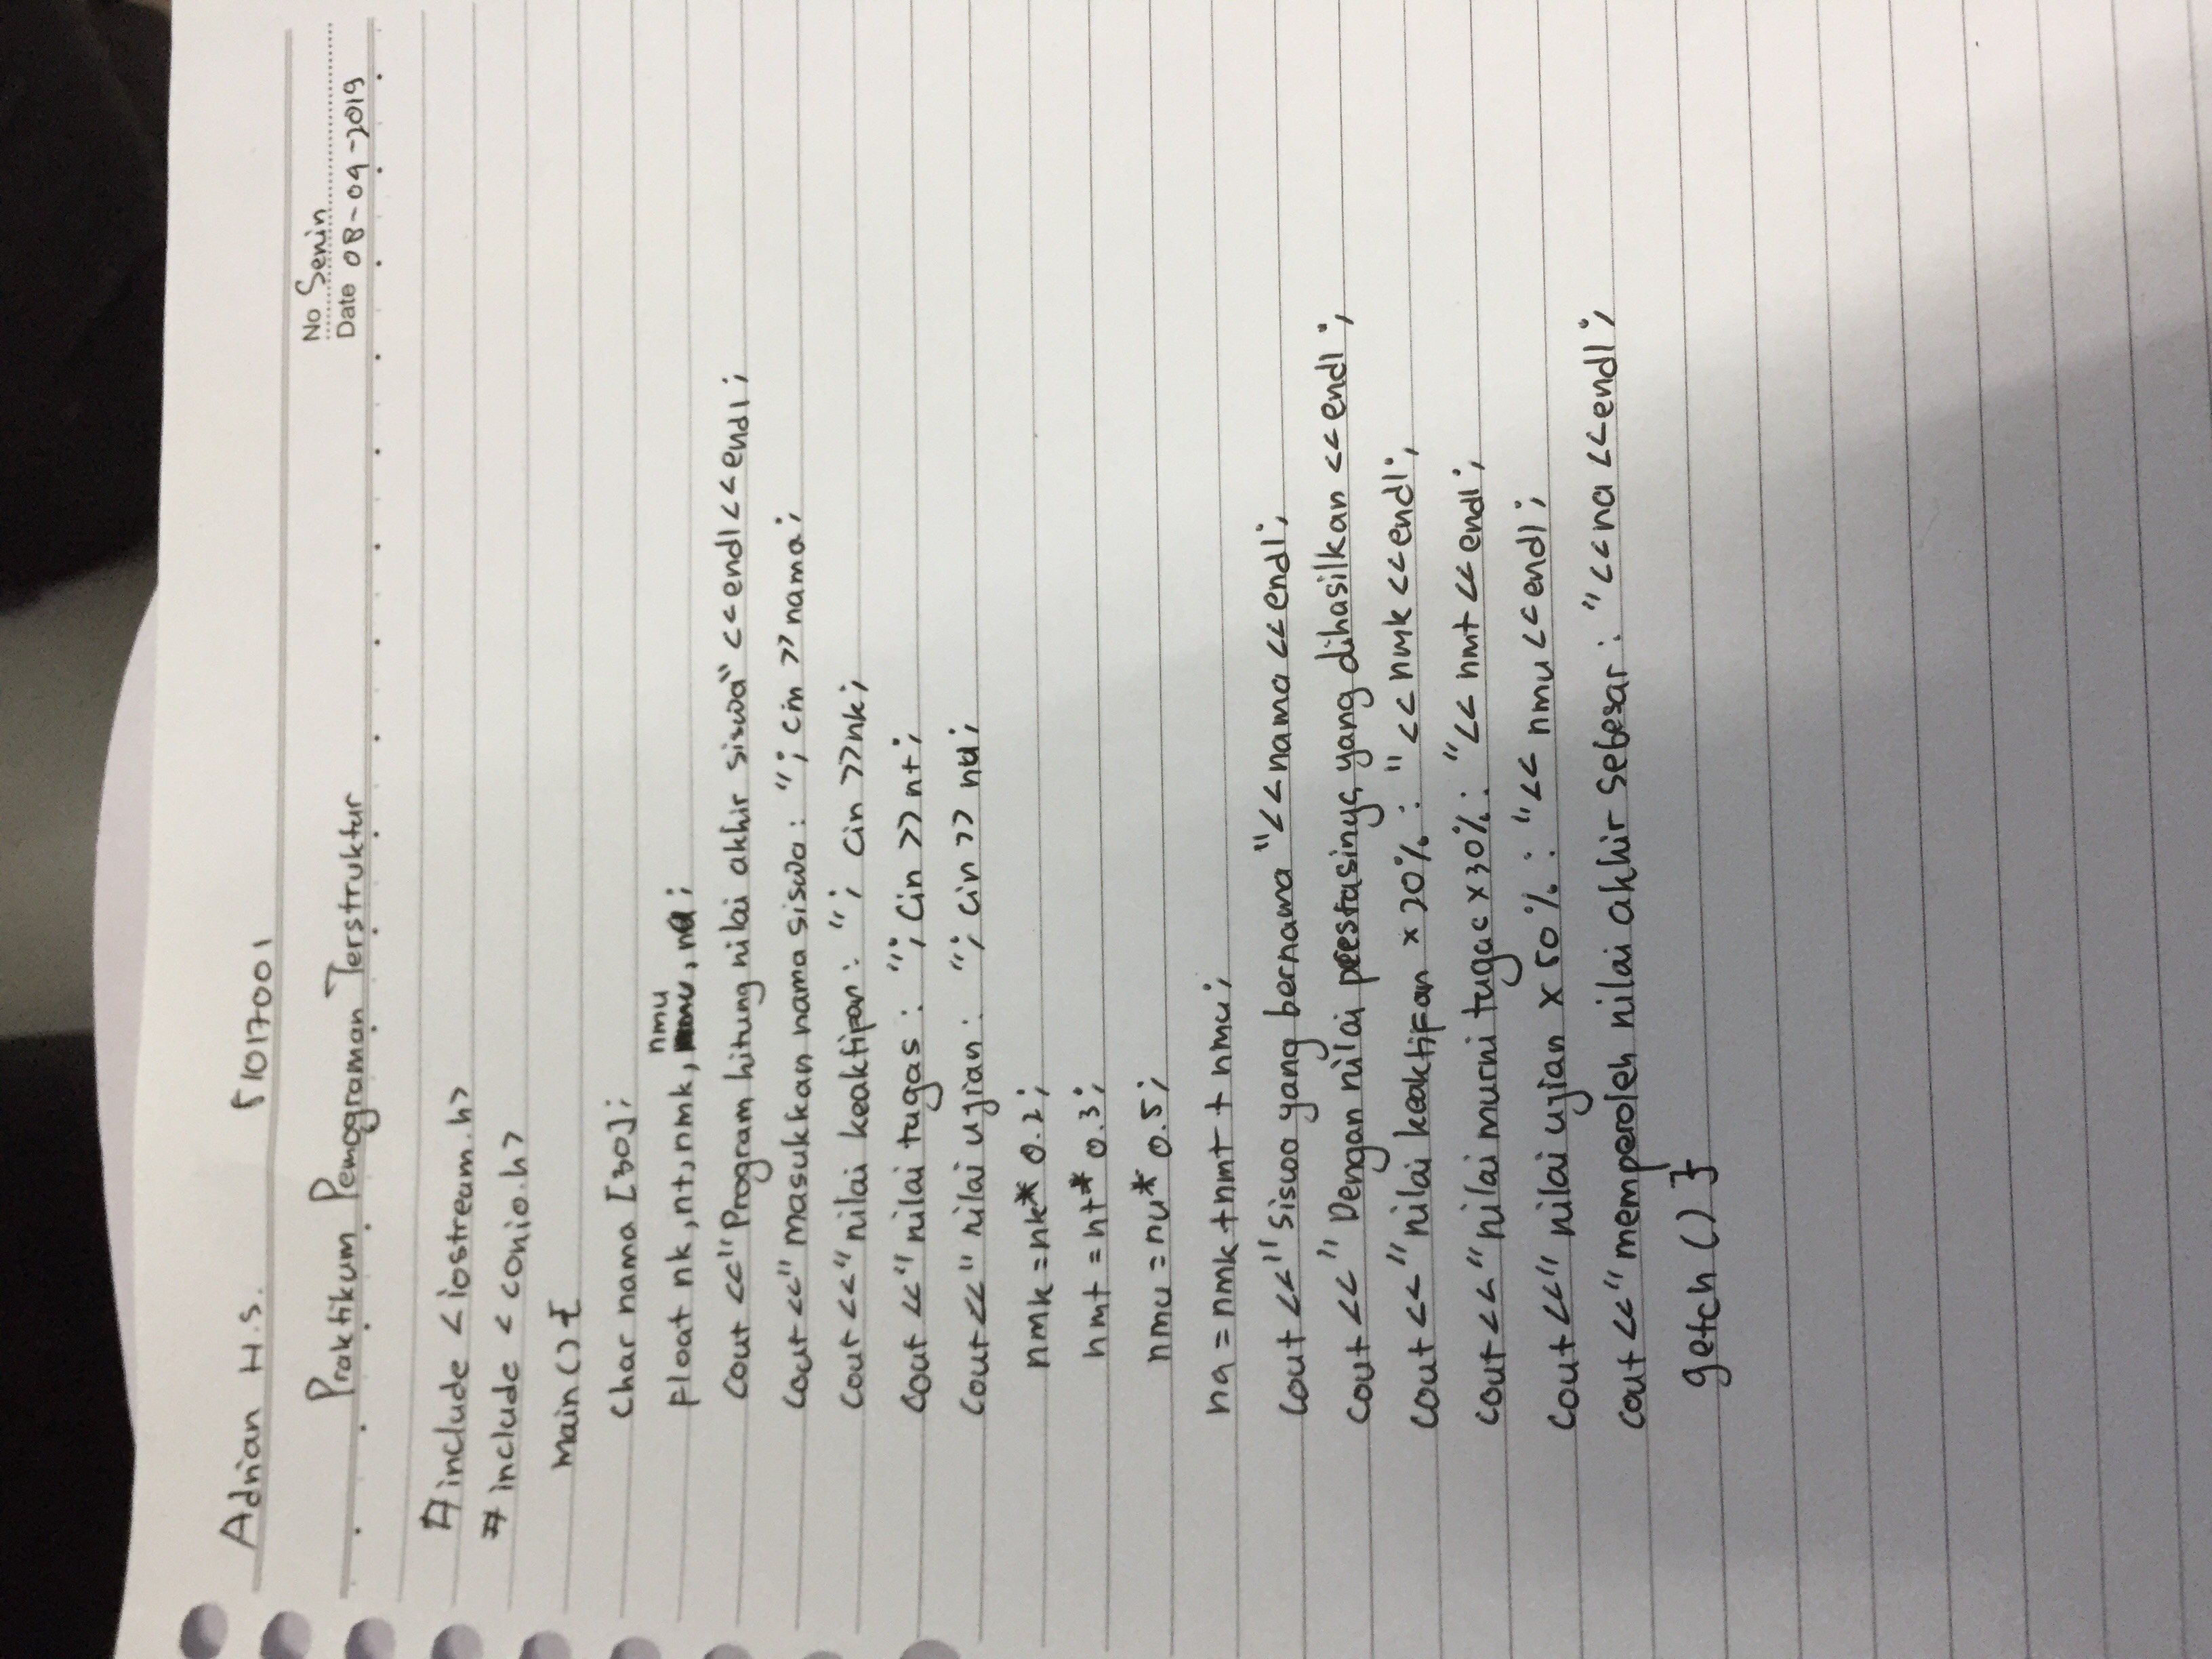 Adrian H.S. 51017001
Praktikum Pemograman Terstruktur
No Senin
Date 08-04-2019
#include <iostream.h>
#include <conio.h>
main () {
char nama [30];
nmu
float nk, nt, nmk, , na;
cout <<"Program hitung nilai akhir siswa" <<endl<<endl;
cout <<" masukkan nama siswa : "; cin >> nama;
cout <<" nilai keaktifan : "; cin >>nk;
cout <<" nilai tugas : "; cin >> nt;
cout <<" nilai ujian : "; cin >> nu;
nmk = nk* 0.2;
nmt = nt* 0.3;
nmu = nu* 0.5;
na = nmk +nmt + nmu;
cout <<" Siswa yang bernama "<<nama <<endl;
cout <<" Dengan nilai prestasinya yang dihasilkan <<endl ;
cout <<" nilai keaktifan x 20% : "<<nmk <<endl;
cout <<" nilai murni tugas x30% : "<< nmt <<endl;
cout <<" nilai ujian x 50% : "<< nmu <<endl;
cout <<" memperoleh nilai akhir sebesar : "<<na <<endl;
getch () }